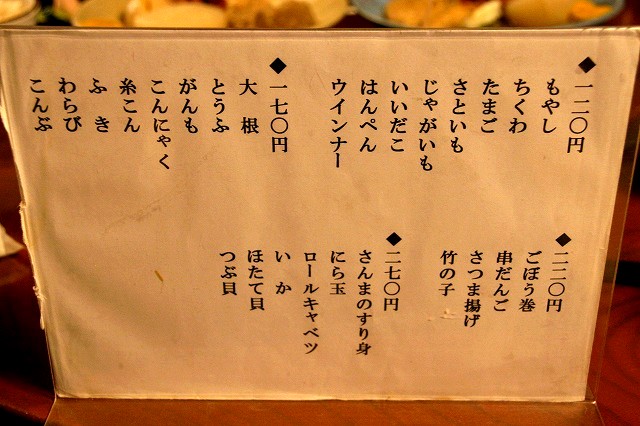 ◆一二〇円
もやし
ちくわ
たまご
さといも
じゃがいも
いいだこ
はんぺん
ウインナー
◆一七〇円
大根
とうふ
がんも
こんにゃく
糸こん
ふき
わらび
こんぶ
◆二二〇円
ごぼう巻
串だんご
さつま揚げ
竹の子
◆二七〇円
さんまのすり身
にら玉
ロールキャベツ
いか
ほたて貝
つぶ貝